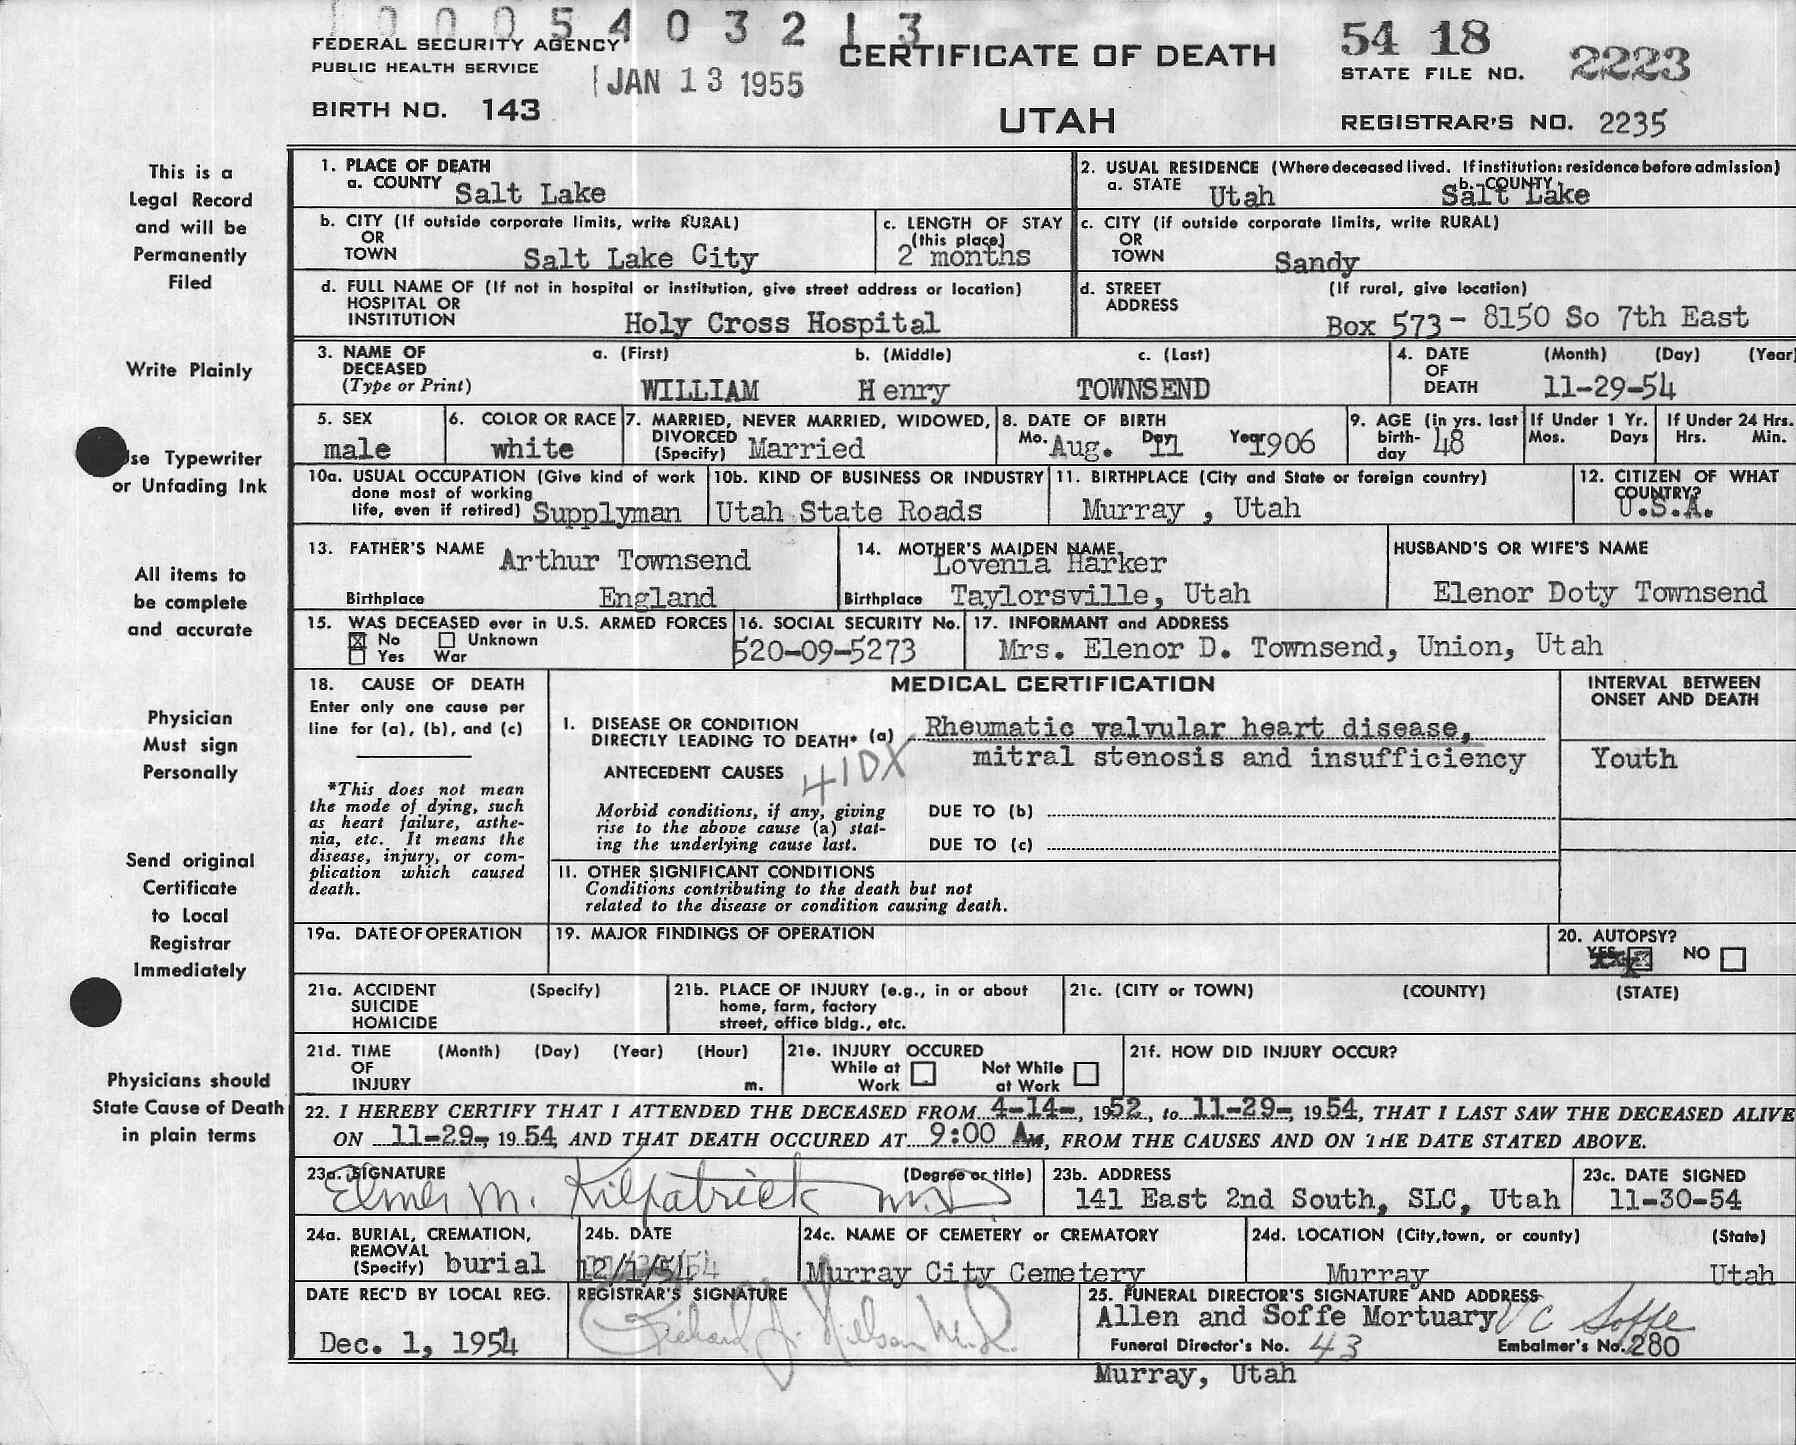 0 0 0 5 4 0 3 2 1 3
FEDERAL SECURITY AGENCY
PUBLIC HEALTH SERVICE
JAN 13 1955
BIRTH NO. 143
CERTIFICATE OF DEATH
UTAH
54 18 2223
STATE FILE NO.
REGISTRAR'S NO. 2235
This is a
Legal Record
and will be
Permanently
Filed
Write Plainly
se Typewriter
or Unfading Ink
All items to
be complete
and accurate
Physician
Must sign
Personally
Send original
Certificate
to Local
Registrar
Immediately
Physicians should
State Cause of Death
in plain terms
1. PLACE OF DEATH
a. COUNTY Salt Lake
2. USUAL RESIDENCE (Where deceased lived. If institution: residence before admission)
a. STATE Utah b. COUNTY Salt Lake
b. CITY (If outside corporate limits, write RURAL)
OR
TOWN Salt Lake City
c. LENGTH OF STAY
(this place)
2 months
c. CITY (if outside corporate limits, write RURAL)
OR
TOWN Sandy
d. FULL NAME OF (If not in hospital or institution, give street address or location)
HOSPITAL OR
INSTITUTION Holy Cross Hospital
d. STREET (If rural, give location)
ADDRESS
Box 573 - 8150 So 7th East
3. NAME OF a. (First) b. (Middle) c. (Last)
DECEASED
(Type or Print) WILLIAM Henry TOWNSEND
4. DATE (Month) (Day) (Year)
OF
DEATH 11-29-54
5. SEX
male
6. COLOR OR RACE
white
7. MARRIED, NEVER MARRIED, WIDOWED,
DIVORCED
(Specify) Married
8. DATE OF BIRTH
Mo. Aug. Day 11 Year 1906
9. AGE (in yrs. last
birth-
day 48
If Under 1 Yr.
Mos. Days
If Under 24 Hrs.
Hrs. Min.
10a. USUAL OCCUPATION (Give kind of work
done most of working
life, even if retired) Supplyman
10b. KIND OF BUSINESS OR INDUSTRY
Utah State Roads
11. BIRTHPLACE (City and State or foreign country)
Murray , Utah
12. CITIZEN OF WHAT
COUNTRY?
U.S.A.
13. FATHER'S NAME Arthur Townsend
Birthplace England
14. MOTHER'S MAIDEN NAME
Lovenia Harker
Birthplace Taylorsville, Utah
HUSBAND'S OR WIFE'S NAME
Elenor Doty Townsend
15. WAS DECEASED ever in U.S. ARMED FORCES
No Unknown
Yes War
16. SOCIAL SECURITY No.
520-09-5273
17. INFORMANT and ADDRESS
Mrs. Elenor D. Townsend, Union, Utah
18. CAUSE OF DEATH
Enter only one cause per
line for (a), (b), and (c)
*This does not mean
the mode of dying, such
as heart failure, asthe-
nia, etc. It means the
disease, injury, or com-
plication which caused
death.
MEDICAL CERTIFICATION
I. DISEASE OR CONDITION
DIRECTLY LEADING TO DEATH* (a) Rheumatic valvular heart disease,
mitral stenosis and insufficiency
ANTECEDENT CAUSES 410X
Morbid conditions, if any, giving
rise to the above cause (a) stat-
ing the underlying cause last.
DUE TO (b)
DUE TO (c)
INTERVAL BETWEEN
ONSET AND DEATH
Youth
II. OTHER SIGNIFICANT CONDITIONS
Conditions contributing to the death but not
related to the disease or condition causing death.
19a. DATE OF OPERATION
19. MAJOR FINDINGS OF OPERATION
20. AUTOPSY?
YES NO
21a. ACCIDENT (Specify)
SUICIDE
HOMICIDE
21b. PLACE OF INJURY (e.g., in or about
home, farm, factory
street, office bldg., etc.
21c. (CITY or TOWN) (COUNTY) (STATE)
21d. TIME (Month) (Day) (Year) (Hour)
OF
INJURY m.
21e. INJURY OCCURED
While at Work
Not While at Work
21f. HOW DID INJURY OCCUR?
22. I HEREBY CERTIFY THAT I ATTENDED THE DECEASED FROM 4-14-, 1952, to 11-29-, 1954, THAT I LAST SAW THE DECEASED ALIVE
ON 11-29-, 1954, AND THAT DEATH OCCURED AT 9:00 Am, FROM THE CAUSES AND ON THE DATE STATED ABOVE.
23a. SIGNATURE (Degree or title)
Elmer M. Kilpatrick M.D.
23b. ADDRESS
141 East 2nd South, SLC, Utah
23c. DATE SIGNED
11-30-54
24a. BURIAL, CREMATION,
REMOVAL
(Specify) burial
24b. DATE
12/1/54
24c. NAME OF CEMETERY or CREMATORY
Murray City Cemetery
24d. LOCATION (City, town, or county) (State)
Murray Utah
DATE REC'D BY LOCAL REG.
Dec. 1, 1954
REGISTRAR'S SIGNATURE
Richard J. Nielson M.D.
25. FUNERAL DIRECTOR'S SIGNATURE AND ADDRESS
Allen and Soffe Mortuary V C Soffe
Funeral Director's No. 43 Embalmer's No. 280
Murray, Utah